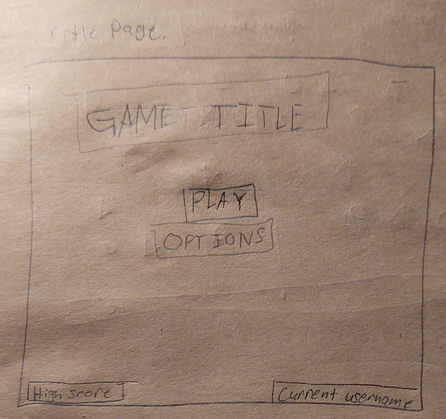 Title Page.
GAME TITLE
PLAY
OPTIONS
High score
Current username